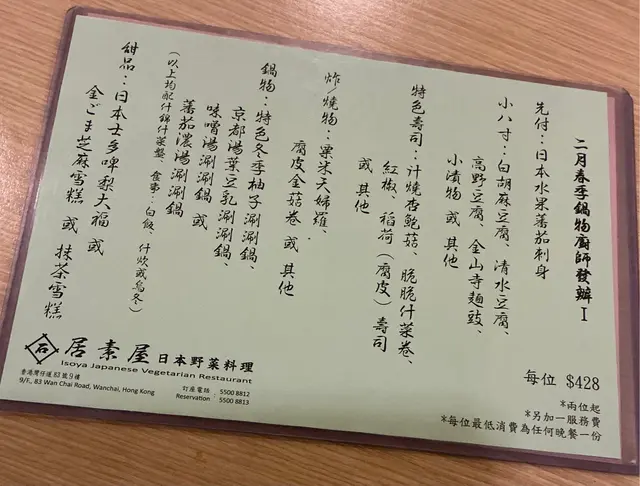 二月春季鍋物廚師發辦 I
先付：日本水果蕃茄刺身
小八寸：白胡麻豆腐、清水豆腐、
高野豆腐、金山寺麵豉、
小漬物 或 其他
特色壽司：汁燒杏鮑菇、脆脆什菜卷、
紅椒、稻荷（腐皮）壽司
或 其他
炸/燒物：粟米天婦羅、
腐皮金菇卷 或 其他
鍋物：特色冬季柚子涮涮鍋、
京都湯葉豆乳涮涮鍋、
味噌湯涮涮鍋 或
蕃茄濃湯涮涮鍋
（以上均配什錦什菜盤、食事：白飯、什炊或烏冬）
甜品：日本士多啤梨大福 或
金ごま芝麻雪糕 或 抹茶雪糕
每位 $428
*兩位起
*另加一服務費
*每位最低消費為任何晚餐一份
居素屋 日本野菜料理
Isoya Japanese Vegetarian Restaurant
香港灣仔道 83 號 9 樓
9/F, 83 Wan Chai Road, Wanchai, Hong Kong
訂座電話 : 5500 8812
Reservation 5500 8813